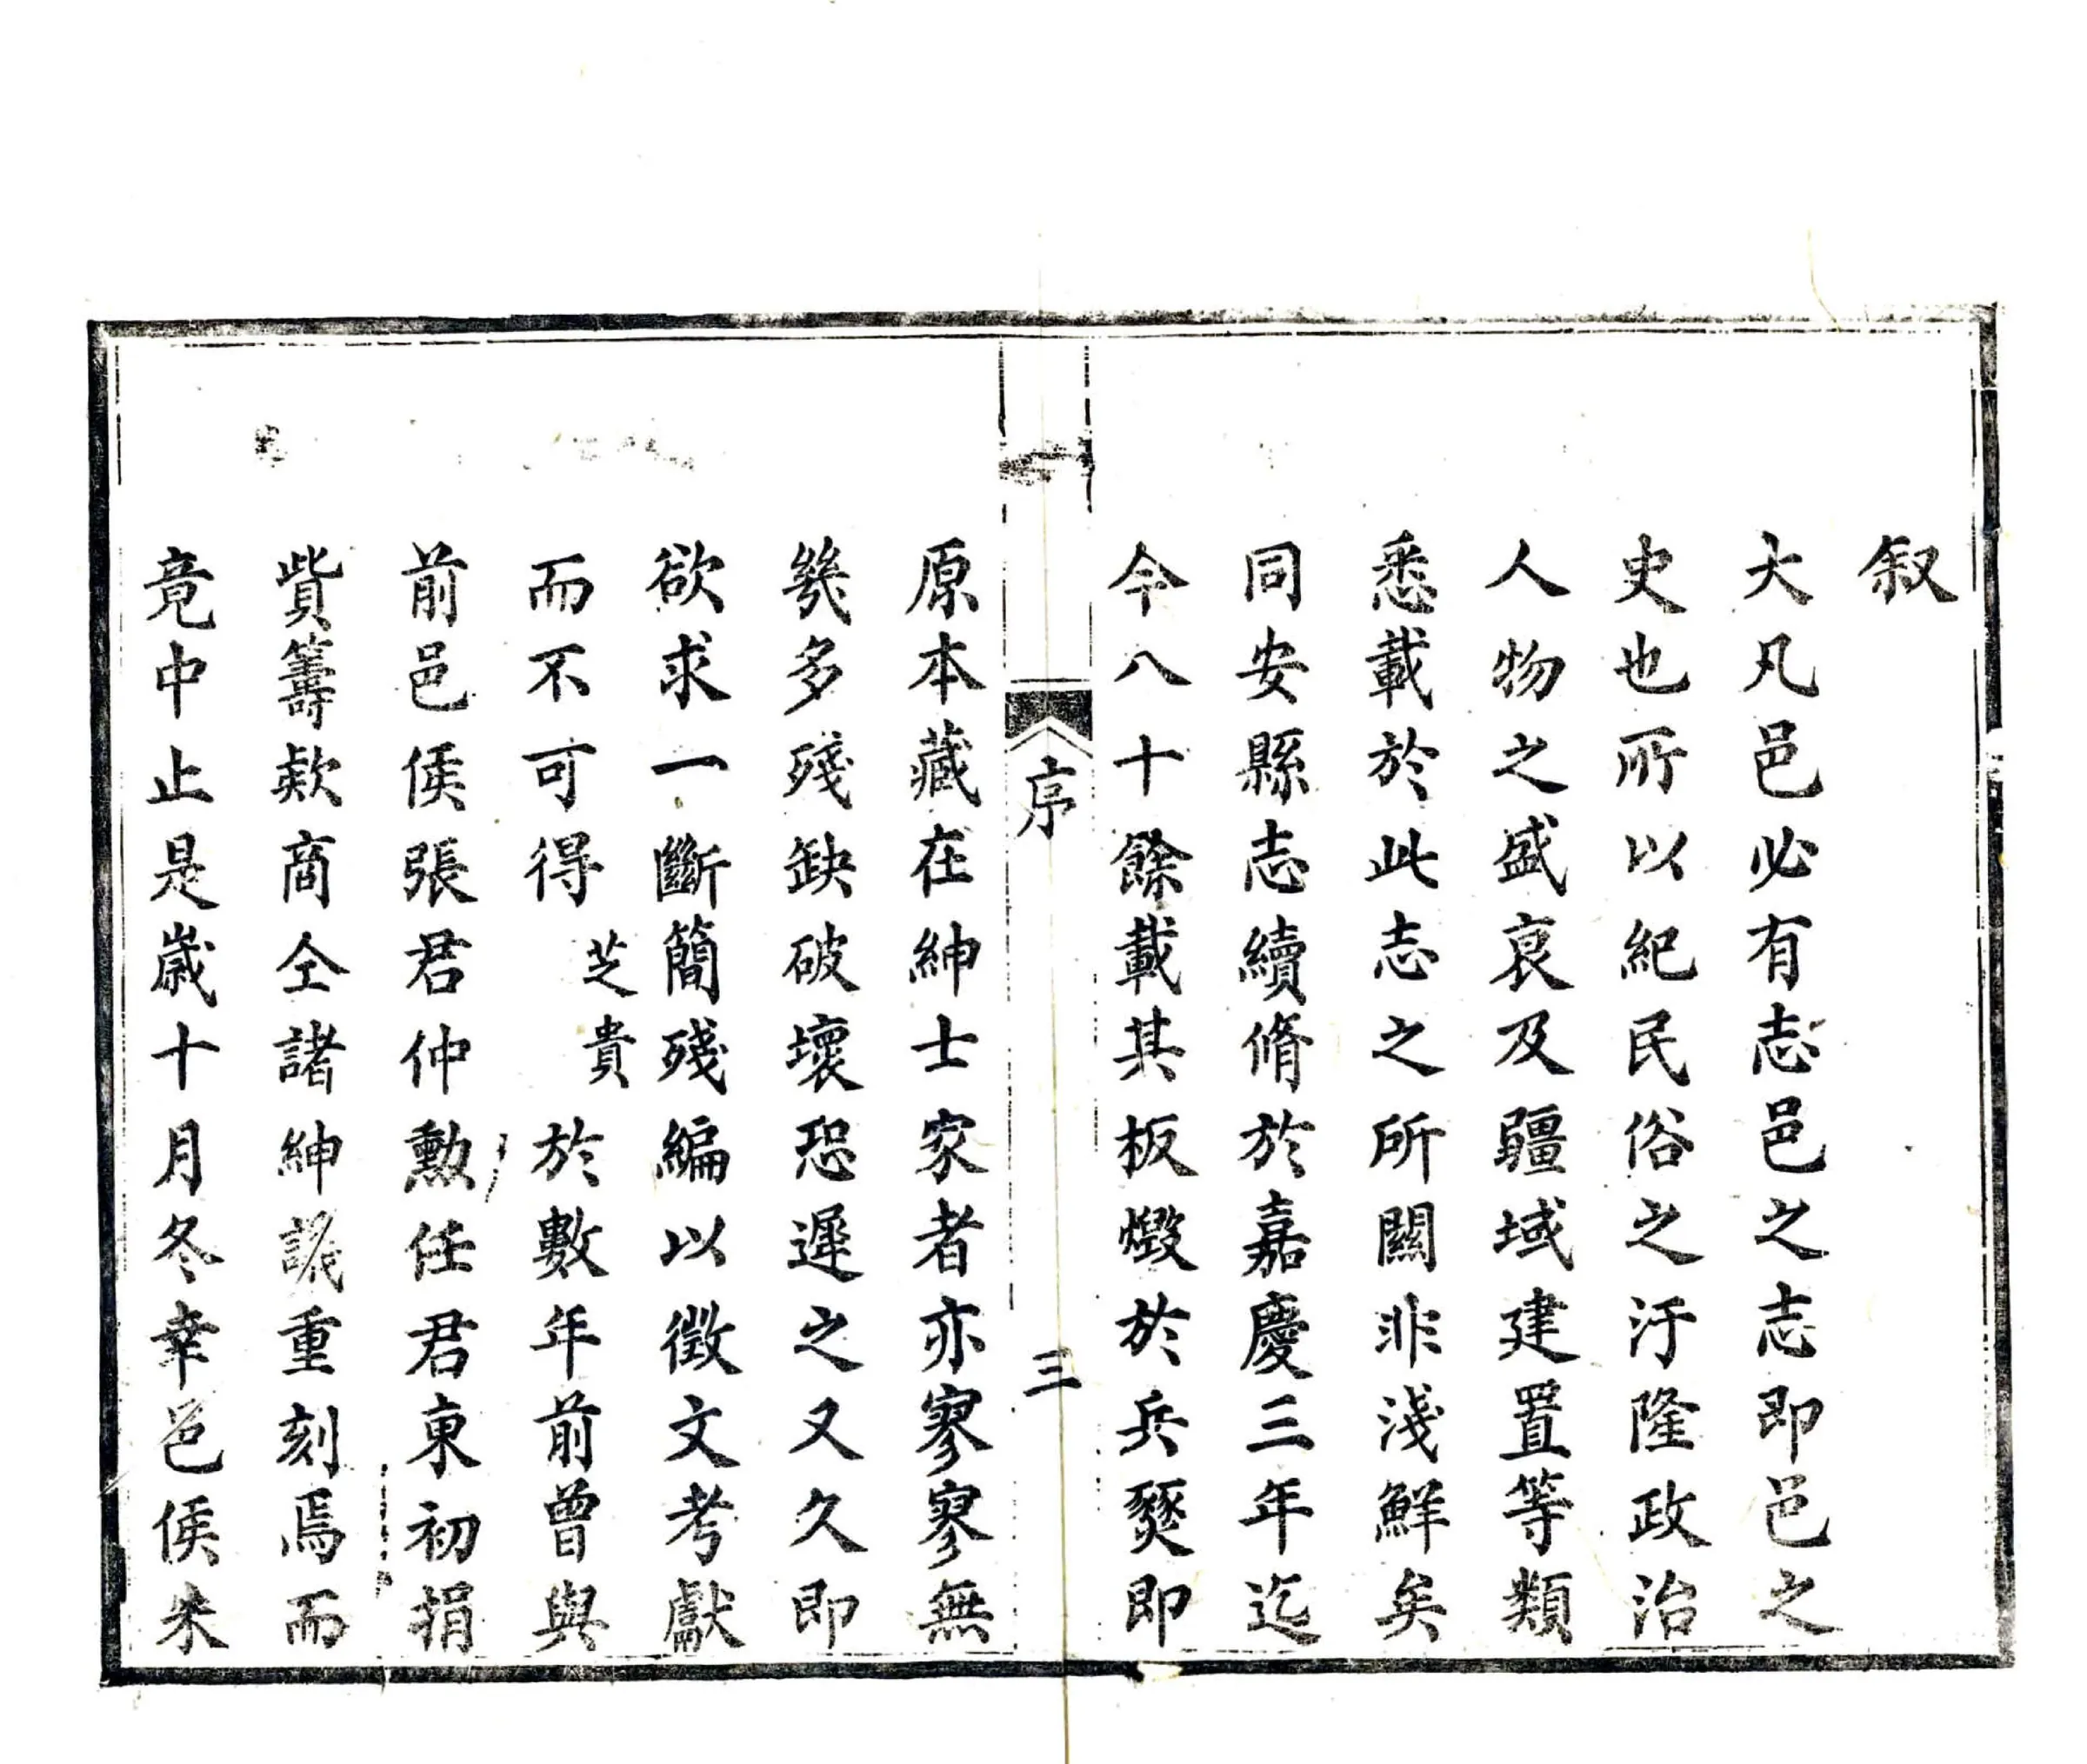 叙
大凡邑必有志邑之志即邑之
史也所以紀民俗之汙隆政治
人物之盛衰及疆域建置等類
悉載於此志之所關非淺鮮矣
同安縣志續脩於嘉慶三年迄
今八十餘載其板燬於兵燹即
序
三
原本藏在紳士家者亦寥寥無
幾多殘缺破壞恐遲之又久即
欲求一斷簡殘編以徵文考獻
而不可得芝貴於數年前曾與
前邑侯張君仲勲任君東初捐
貲籌欵商仝諸紳議重刻焉而
竟中止是歲十月冬幸邑侯朱